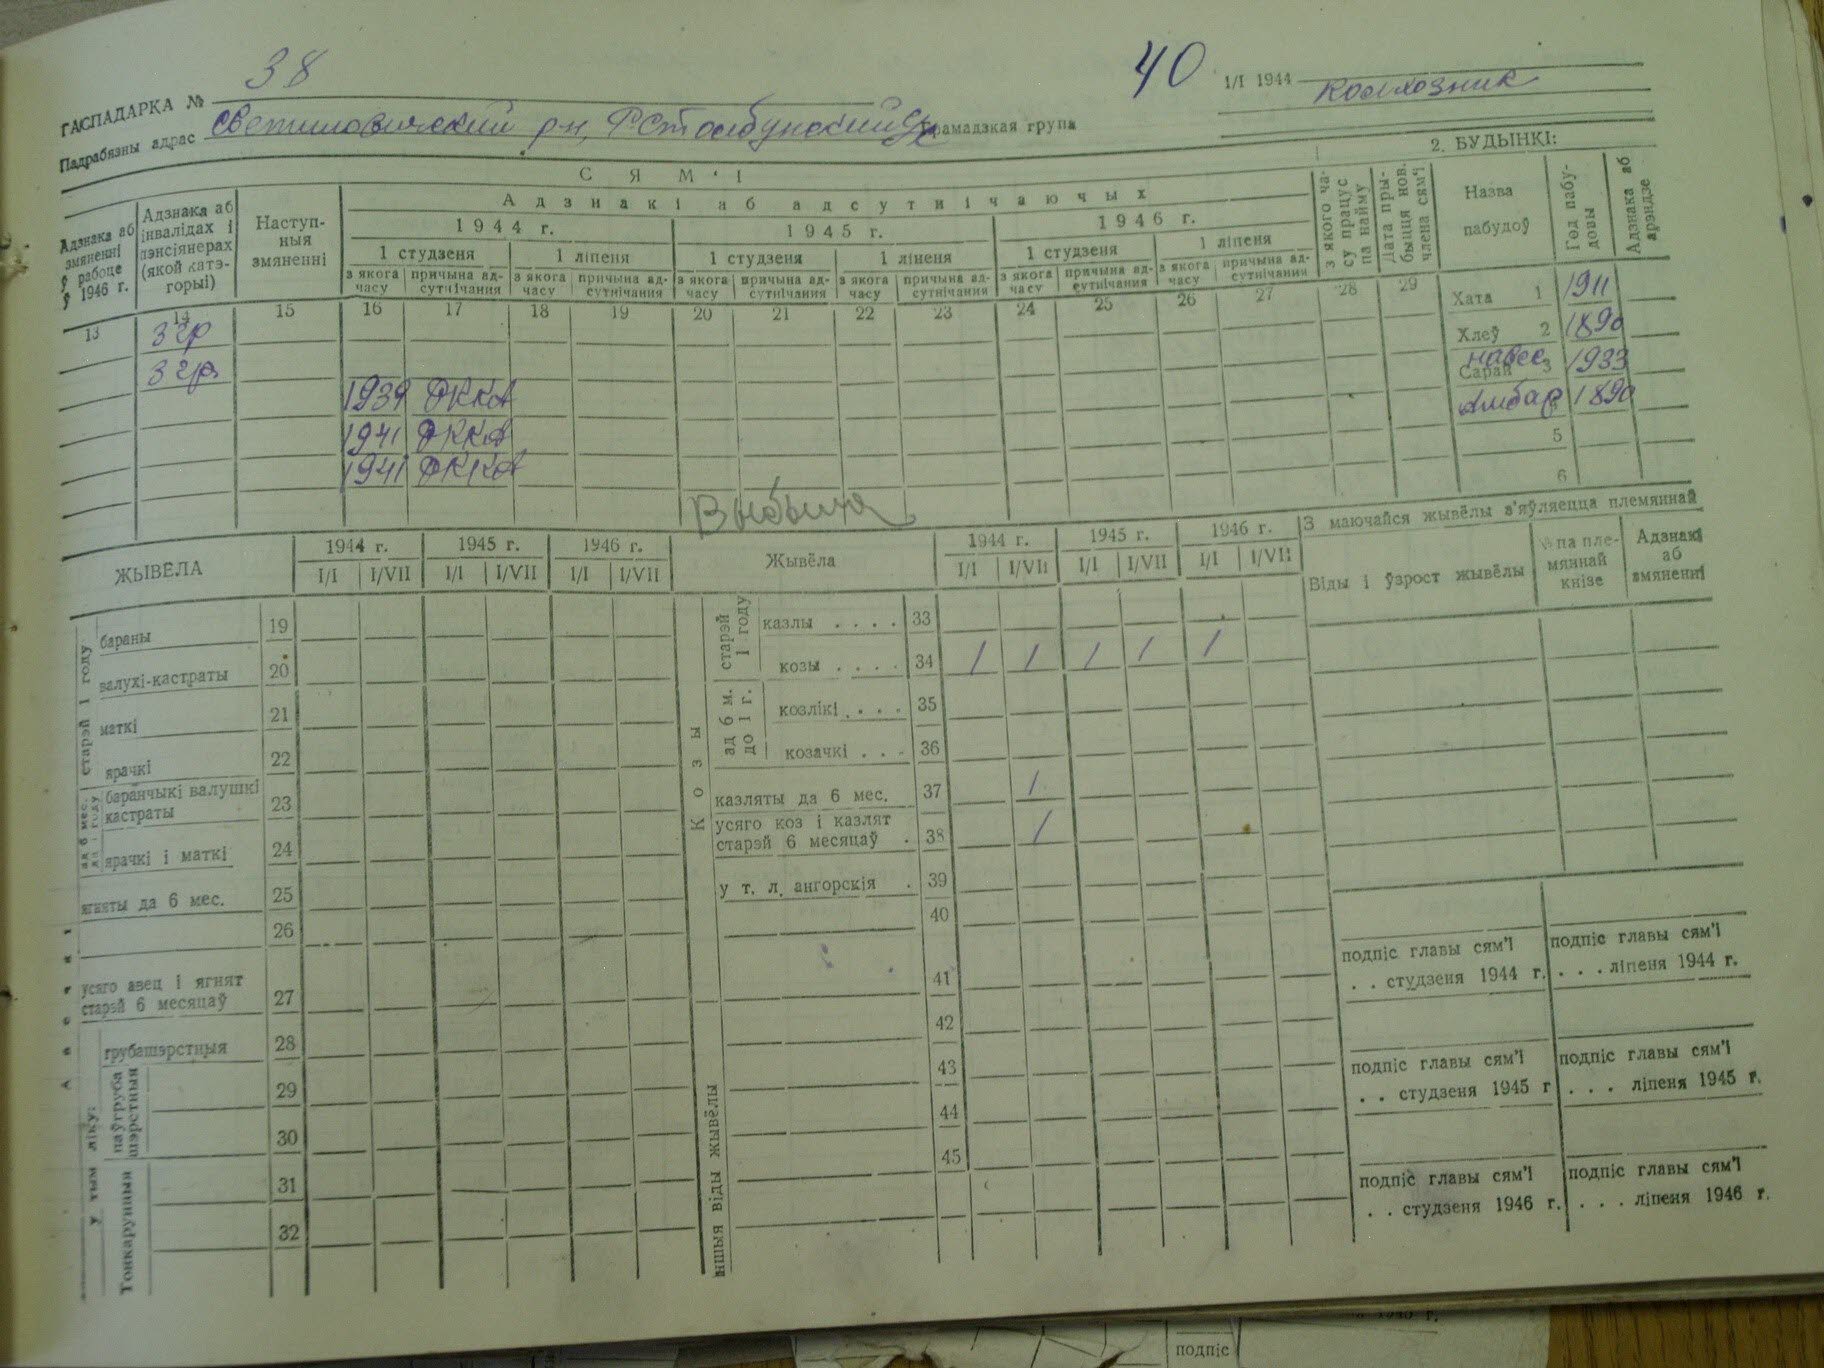 38
40
ГАСПАДАРКА №
1/I 1944 колхозник
Падрабязны адрас Светиловический р-н, Рстолбунский с/с Грамадзкая група
С Я М ' І
2. БУДЫНКІ:
Адзнака аб змяненні ў рабоце ў 1946 г.
Адзнака аб інвалідах і пэнсіянерах (якой катэгорыі)
Наступныя змяненні
Адзнакі аб адсутнічаючых
1944 г. 1945 г. 1946 г.
1 студзеня 1 ліпеня 1 студзеня 1 ліпеня 1 студзеня 1 ліпеня
з якога часу причына адсутнічания з якога часу причына адсутнічания з якога часу причына адсутнічания з якога часу причына адсутнічания з якога часу причына адсутнічания з якога часу причына адсутнічания
з якога часу працуе па найму
Дата прыбыцця нов. члена сям'і
Назва пабудоў
Год пабудовы
Адзнака аб арэндзе
13 14 15 16 17 18 19 20 21 22 23 24 25 26 27 28 29
3 гр Хата 1 1911
3 гр Хлеў 2 1890
навес Сарай 3 1933
1939 РККА амбар 1890
1941 РККА 5
1941 РККА 6
Выбыла
З маючайся жывёлы з'яўляецца племяннай
ЖЫВЁЛА 1944 г. 1945 г. 1946 г. Жывёла 1944 г. 1945 г. 1946 г.
I/I I/VII I/I I/VII I/I I/VII I/I I/VII I/I I/VII I/I I/VII
Віды і ўзрост жывёлы
№ па племяннай кнізе
Адзнакі аб змяненні
Авечкі
старэй 1 году
бараны 19
валухі-кастраты 20
маткі 21
ярачкі 22
ад 6 мес. да 1 году
баранчыкі валушкі кастраты 23
ярачкі і маткі 24
ягняты да 6 мес. 25
26
усяго авец і ягнят старэй 6 месяцаў 27
у тым ліку:
грубашэрстныя 28
паўгрубашэрстныя 29
30
Тонкарунныя 31
32
Козы
старэй 1 году
казлы . . . . 33
козы . . . . 34 1 1 1 1 1
ад 6 м. до 1 г.
козлікі . . . . 35
козачкі . . . 36
казляты да 6 мес. 37 1
усяго коз і казлят старэй 6 месяцаў . 38 1
у т. л. ангорскія . 39
40
іншыя віды жывёлы
41
42
43
44
45
подпіс главы сям'і . . студзеня 1944 г.
подпіс главы сям'і . . . ліпеня 1944 г.
подпіс главы сям'і . . студзеня 1945 г
подпіс главы сям'і . . . ліпеня 1945 г.
подпіс главы сям'і . . студзеня 1946 г.
подпіс главы сям'і . . . ліпеня 1946 г.
подпіс